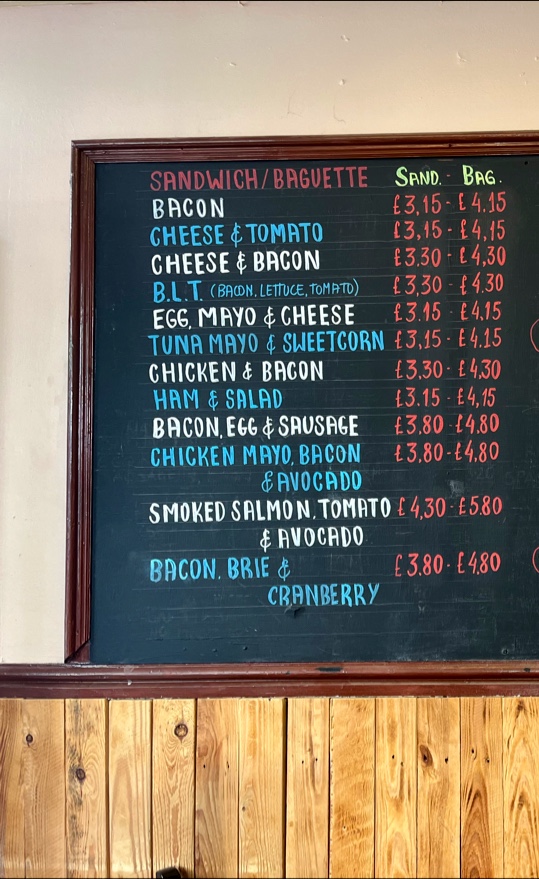 SANDWICH/BAGUETTE SAND. - BAG.
BACON £3,15 - £4.15
CHEESE & TOMATO £3,15 - £4,15
CHEESE & BACON £3.30 - £4,30
B.L.T. (BACON, LETTUCE, TOMATO) £3,30 - £4.30
EGG, MAYO & CHEESE £3.15 - £4,15
TUNA MAYO & SWEETCORN £3,15 - £4.15
CHICKEN & BACON £3,30 - £4,30
HAM & SALAD £3.15 - £4,15
BACON, EGG & SAUSAGE £3.80 - £4.80
CHICKEN MAYO, BACON £3,80 - £4.80
& AVOCADO
SMOKED SALMON, TOMATO £4,30 - £5.80
& AVOCADO
BACON. BRIE & £3.80 - £4,80
CRANBERRY